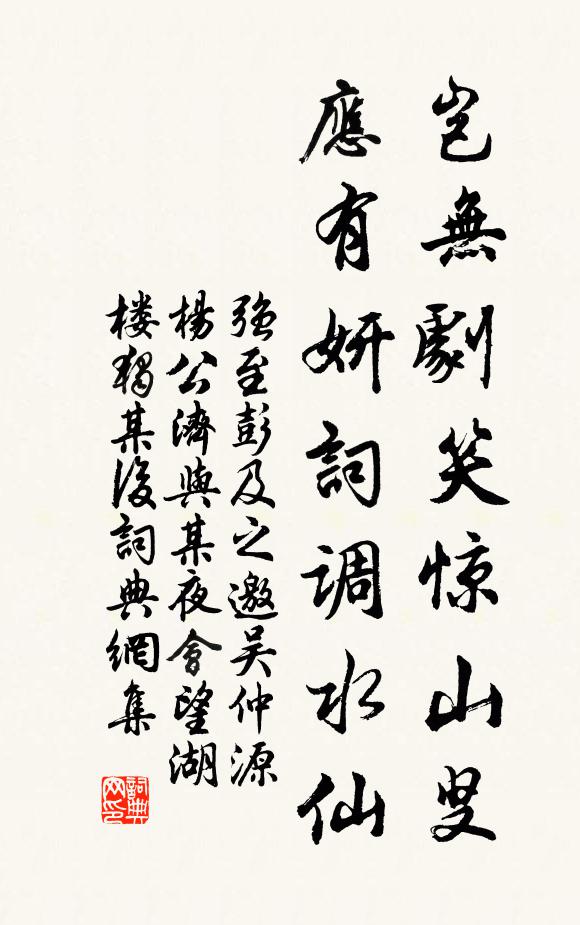 豈無劇笑惊山叟
應有妍詞調水仙
强至彭及之邀吴仲源
楊公濟與某夜會望湖
楼獨某後詞典網集
詞典网印